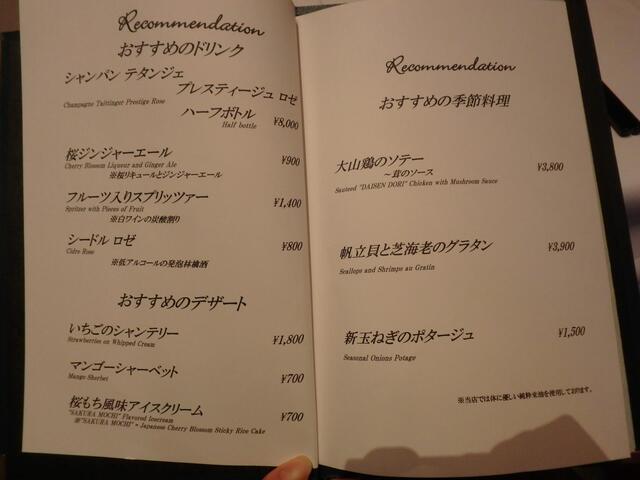 Recommendation
おすすめのドリンク
シャンパン テタンジェ
プレスティージュ ロゼ
Champagne Taittinger Prestige Rose
ハーフボトル
Half bottle ¥8,000
桜ジンジャーエール ¥900
Cherry Blossom Liqueur and Ginger Ale
※桜リキュールとジンジャーエール
フルーツ入りスプリッツァー ¥1,400
Spritzer with Pieces of Fruit
※白ワインの炭酸割り
シードル ロゼ ¥800
Cidre Rose
※低アルコールの発泡林檎酒
おすすめのデザート
いちごのシャンテリー ¥1,800
Strawberries on Whipped Cream
マンゴーシャーベット ¥700
Mango Sherbet
桜もち風味アイスクリーム ¥700
"SAKURA MOCHI" Flavored Icecream
※"SAKURA MOCHI" = Japanese Cherry Blossom Sticky Rice Cake
Recommendation
おすすめの季節料理
大山鶏のソテー ¥3,800
～茸のソース
Sauteed "DAISEN DORI" Chicken with Mushroom Sauce
帆立貝と芝海老のグラタン ¥3,900
Scallops and Shrimps au Gratin
新玉ねぎのポタージュ ¥1,500
Seasonal Onions Potage
※当店では体に優しい純粋米油を使用しております。